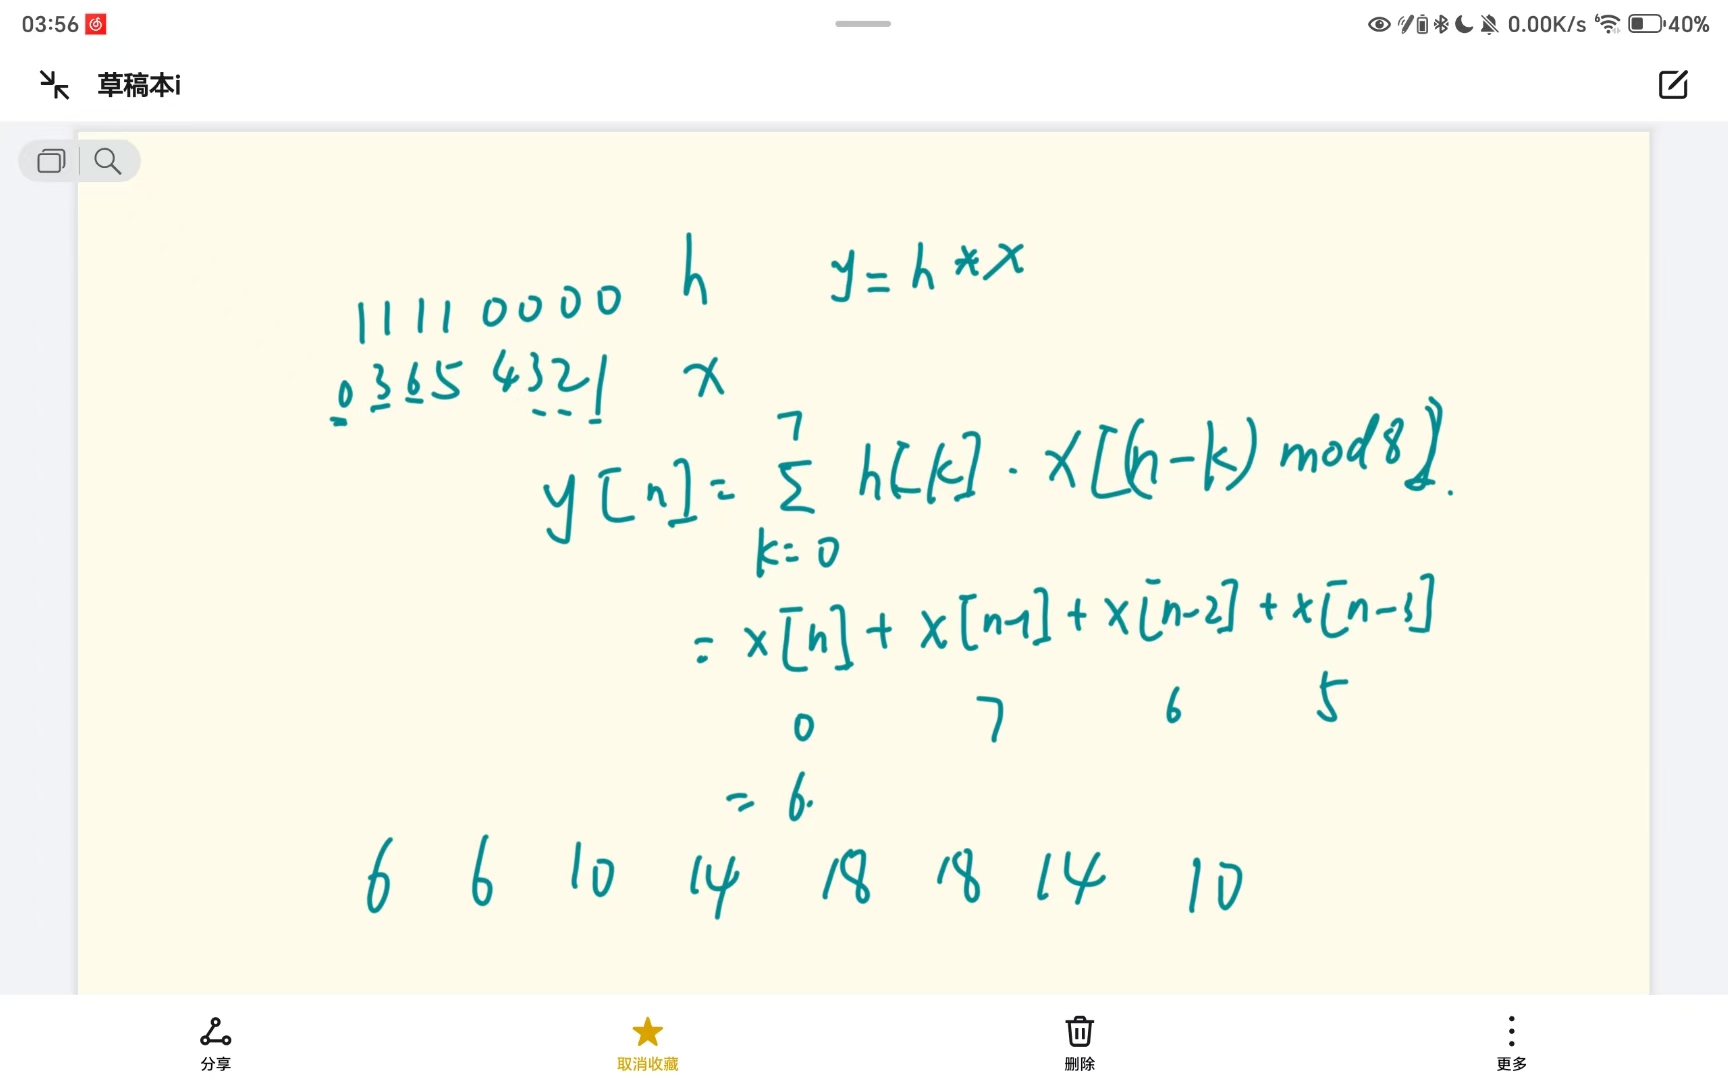 03:56 0.00K/s 6 40%
草稿本i
h y = h * x
1 1 1 1 0 0 0 0
0 3 6 5 4 3 2 1 x
7
y[n] = Σ h[k] · x[(n-k) mod 8].
k=0
= x[n] + x[n-1] + x[n-2] + x[n-3]
0 7 6 5
= 6.
6 6 10 14 18 18 14 10
分享 取消收藏 删除 更多